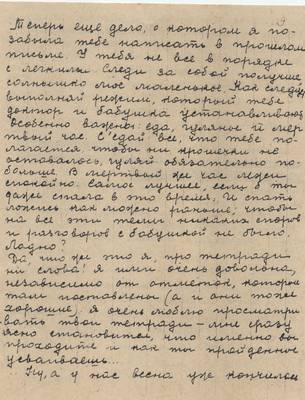 Теперь ещё дело, о котором я по-
забыла тебе написать в прошлом
письме. У тебя не все в порядке
с легкими. Следи за собой получше,
солнышко мое маленькое. Как следует
выполняй режим, который тебе
доктор и бабушка устанавливают.
Особенно важны еда, гулянье и мер-
твый час. С'едай все, что тебе по-
лагается чтобы ни крошечки не
оставалось, гуляй обязательно по-
больше. В мертвый же час лежи
спокойно. Самое лучшее, если б ты
даже спала в это время. И спать
ложись как можно раньше; чтобы
на все эти темы никаких споров
и разговоров с бабушкой не было.
Ладно?
Да, что же это я, про тетради
ни слова! Я ими очень довольна,
независимо от отметок, которые
там поставлены (а и они тоже
хорошие). Я очень люблю просматри
вать твои тетради – мне сразу
ясно становится, что именно вы
проходите и как ты пройденное
усваиваешь...
Ну, а у нас весна уже кончилась